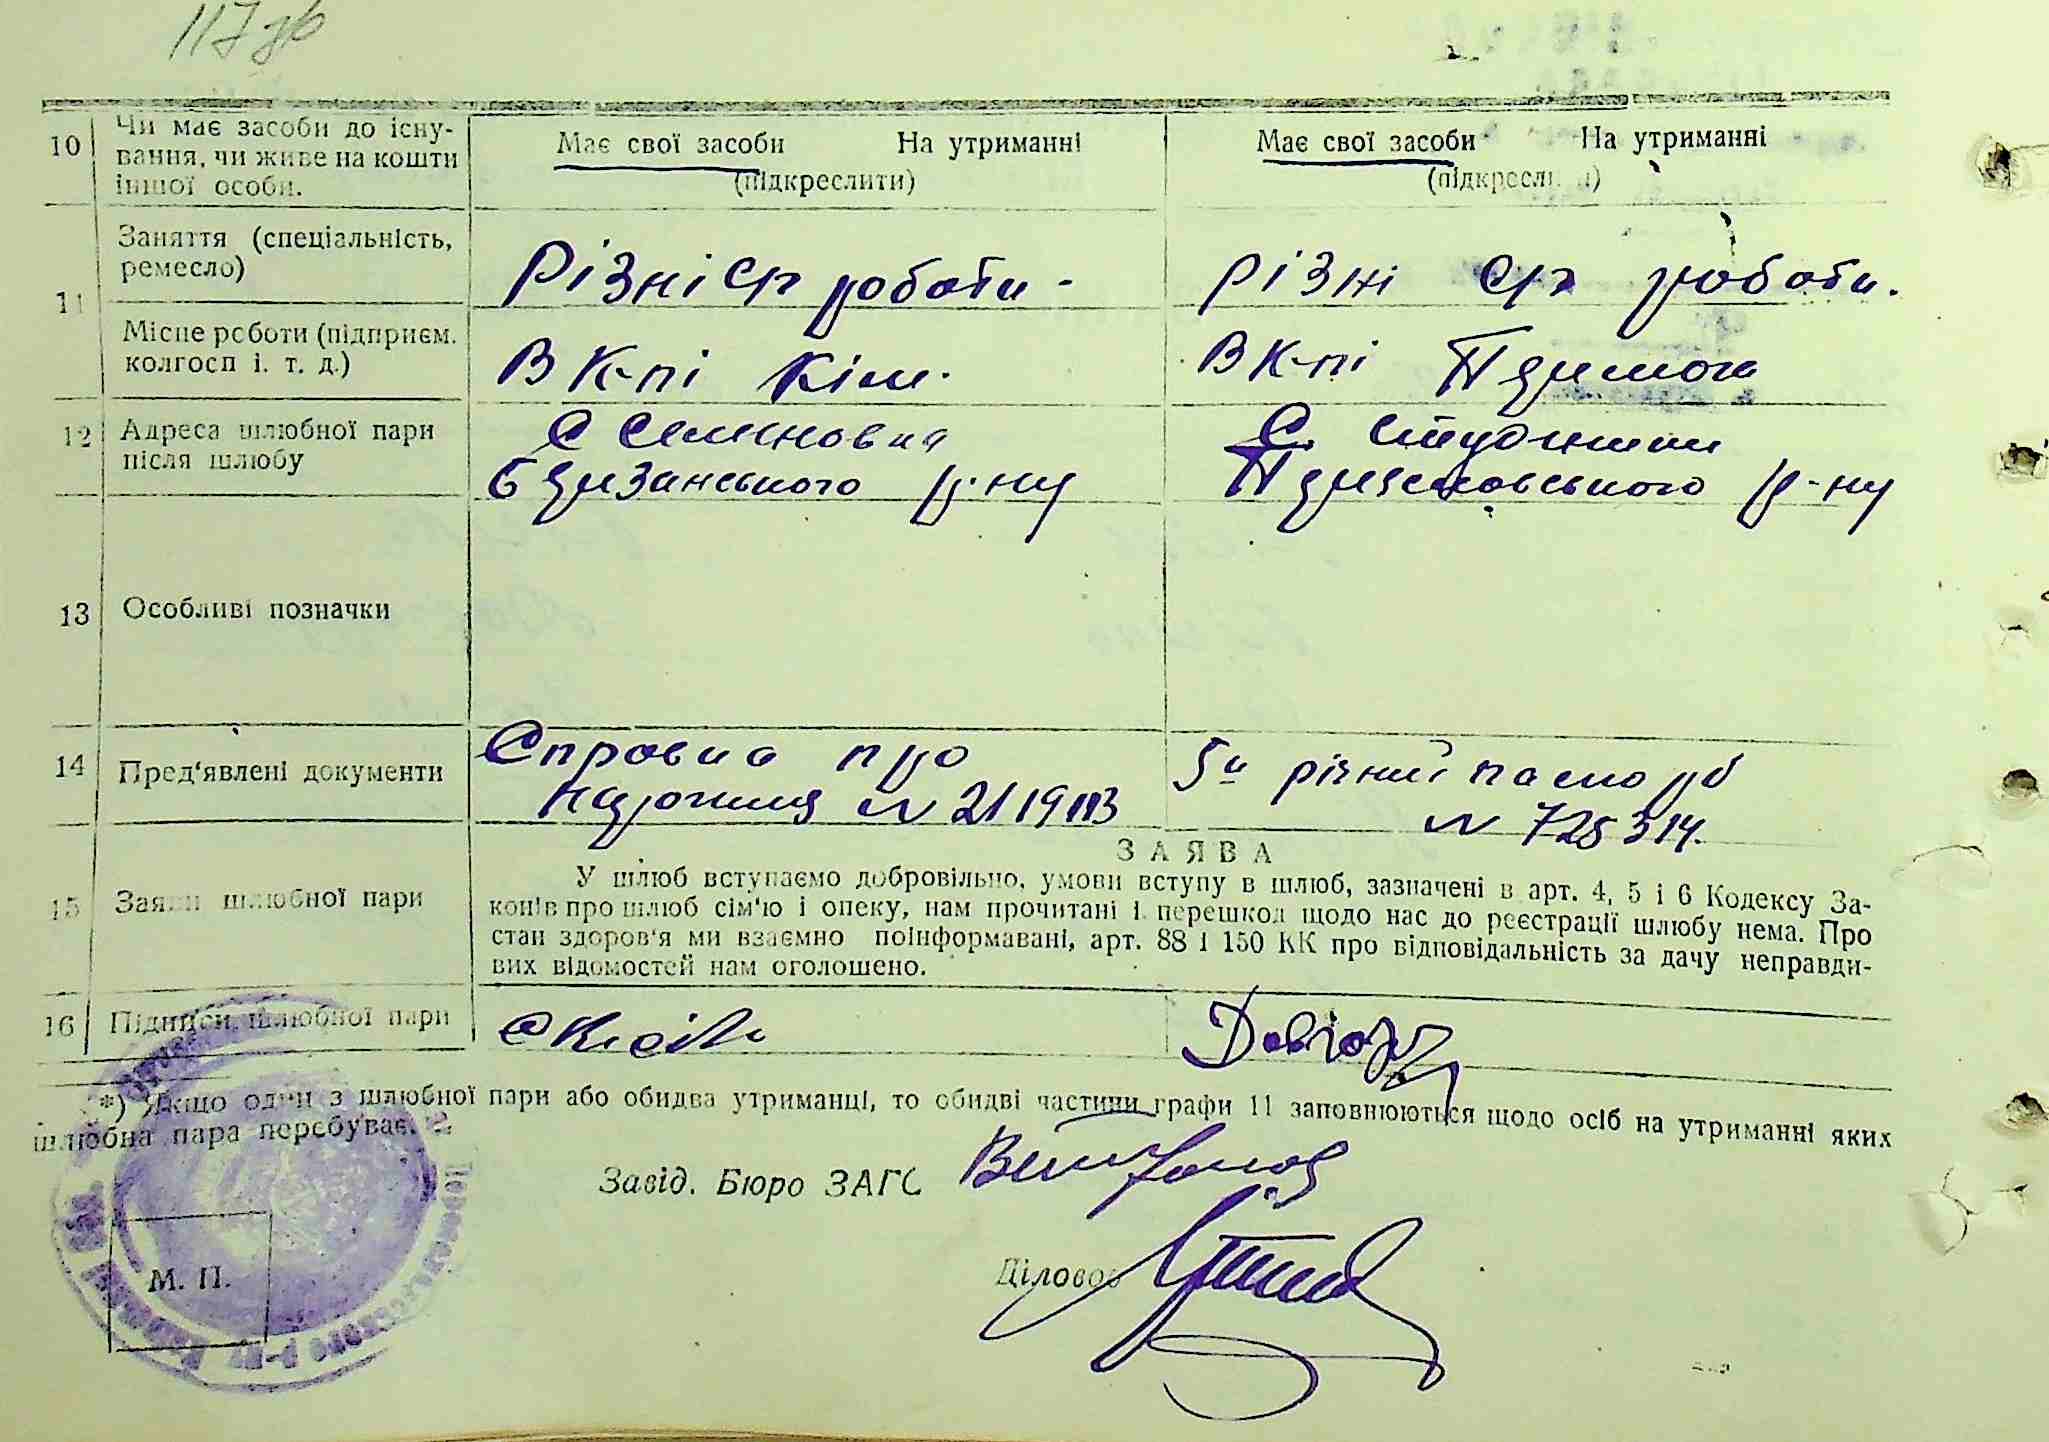 117 зв
10 Чи має засоби до існу-
вання, чи живе на кошти
іншої особи.
Має свої засоби На утриманні
(підкреслити)
Має свої засоби На утриманні
(підкреслити)
11 Заняття (спеціальність,
ремесло)
Різні с/г роботи -
різні с/г роботи.
Місце роботи (підприєм.
колгосп і. т. д.)
В к-пі Кім.
В к-пі
12 Адреса шлюбної пари
після шлюбу
с Семеновка
р-ну
с.
р-ну
13 Особливі позначки
14 Пред'явлені документи
Справка про
N 2119113
5и річний паспорт
N 725314.
15 Заяви шлюбної пари
ЗАЯВА
У шлюб вступаємо добровільно, умови вступу в шлюб, зазначені в арт. 4, 5 і 6 Кодексу За-
конів про шлюб сім'ю і опеку, нам прочитані і перешкод щодо нас до реєстрації шлюбу нема. Про
стан здоров'я ми взаємно поінформавані, арт. 88 і 150 КК про відповідальність за дачу неправди-
вих відомостей нам оголошено.
16 Підписи шлюбної пари
*) Якщо один з шлюбної пари або обидва утриманці, то обидві частини графи 11 заповнюються щодо осіб на утриманні яких
шлюбна пара перебуває.
Завід. Бюро ЗАГС
Діловод
М. П.